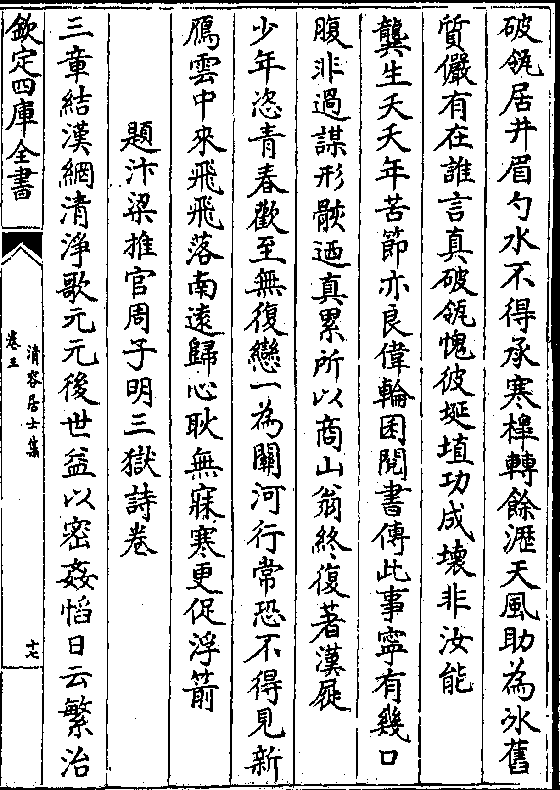 破瓴居井眉勺水不得承寒槹轉餘瀝天風助為氷舊
質儼有在誰言真破瓴愧彼埏埴功成壊非汝能
龔生夭天年苦節亦良偉輪囷閱書傳此事寧有幾口
腹非過謀形骸迺真累所以商山翁終復著漢屣
少年恣青春歡至無復戀一為關河行常恐不得見新
鴈雲中來飛飛落南遠歸心耿無寐寒更促浮箭
題汴梁推官周子明三獄詩卷
三章結漢網清淨歌元元後世益以密姦慆日云繁治
欽定四庫全書
清容居士集
卷五
十七